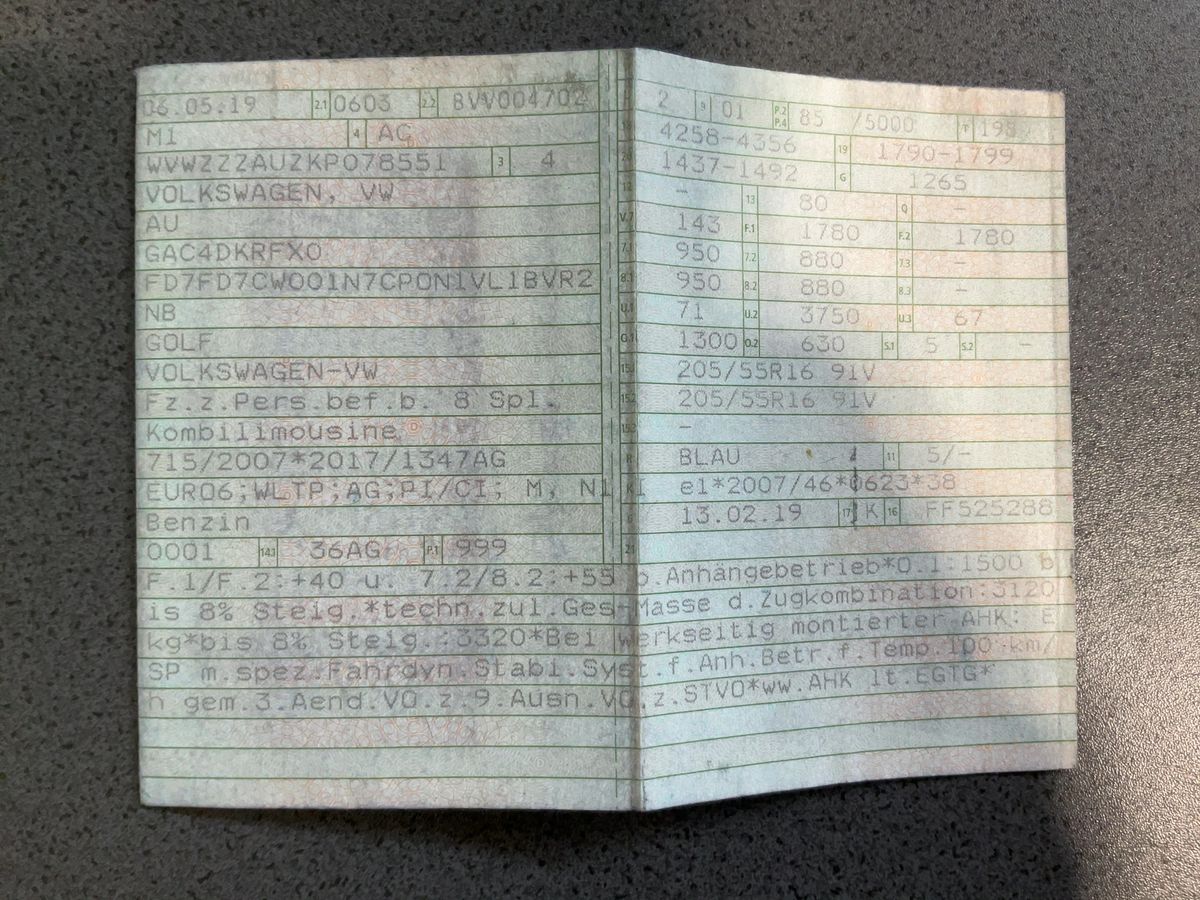 06.05.19 2.1 0603 2.2 BVV004702
M1 4 AC
WVWZZZAUZKP078551 3 4
VOLKSWAGEN, VW
AU
GAC4DKRFX0
FD7FD7CW001N7CPON1VL1BVR2
NB
GOLF
VOLKSWAGEN-VW
Fz.z.Pers.bef.b. 8 Spl.
Kombilimousine
715/2007*2017/1347AG
EURO6;WLTP;AG;PI/CI; M, N1
Benzin
0001 14.1 36AG P.1 999
2 9 01 P.2 P.4 85 /5000 T 195
4258-4356 19 1790-1799
1437-1492 G 1265
12 - 13 80 Q -
V.7 143 F.1 1780 F.2 1780
7.1 950 7.2 880 7.3 -
8.1 950 8.2 880 8.3 -
U.1 71 U.2 3750 U.3 67
O.1 1300 O.2 630 S.1 5 S.2 -
15.1 205/55R16 91V
15.2 205/55R16 91V
15.3 -
R BLAU 11 5/-
K e1*2007/46*0623*38
6 13.02.19 17 K 16 FF525288
21
F.1/F.2:+40 u. 7.2/8.2:+55 b.Anhängebetrieb*O.1:1500 b
is 8% Steig.*techn.zul.Ges-Masse d.Zugkombination:3120
kg*bis 8% Steig.:3320*Bei werkseitig montierter AHK: E
SP m.spez.Fahrdyn.Stabi.Syst.f.Anh.Betr.f.Temp.100 km/
h gem.3.Aend.VO.z.9.Ausn.VO.z.STVO*ww.AHK lt.EGTG*